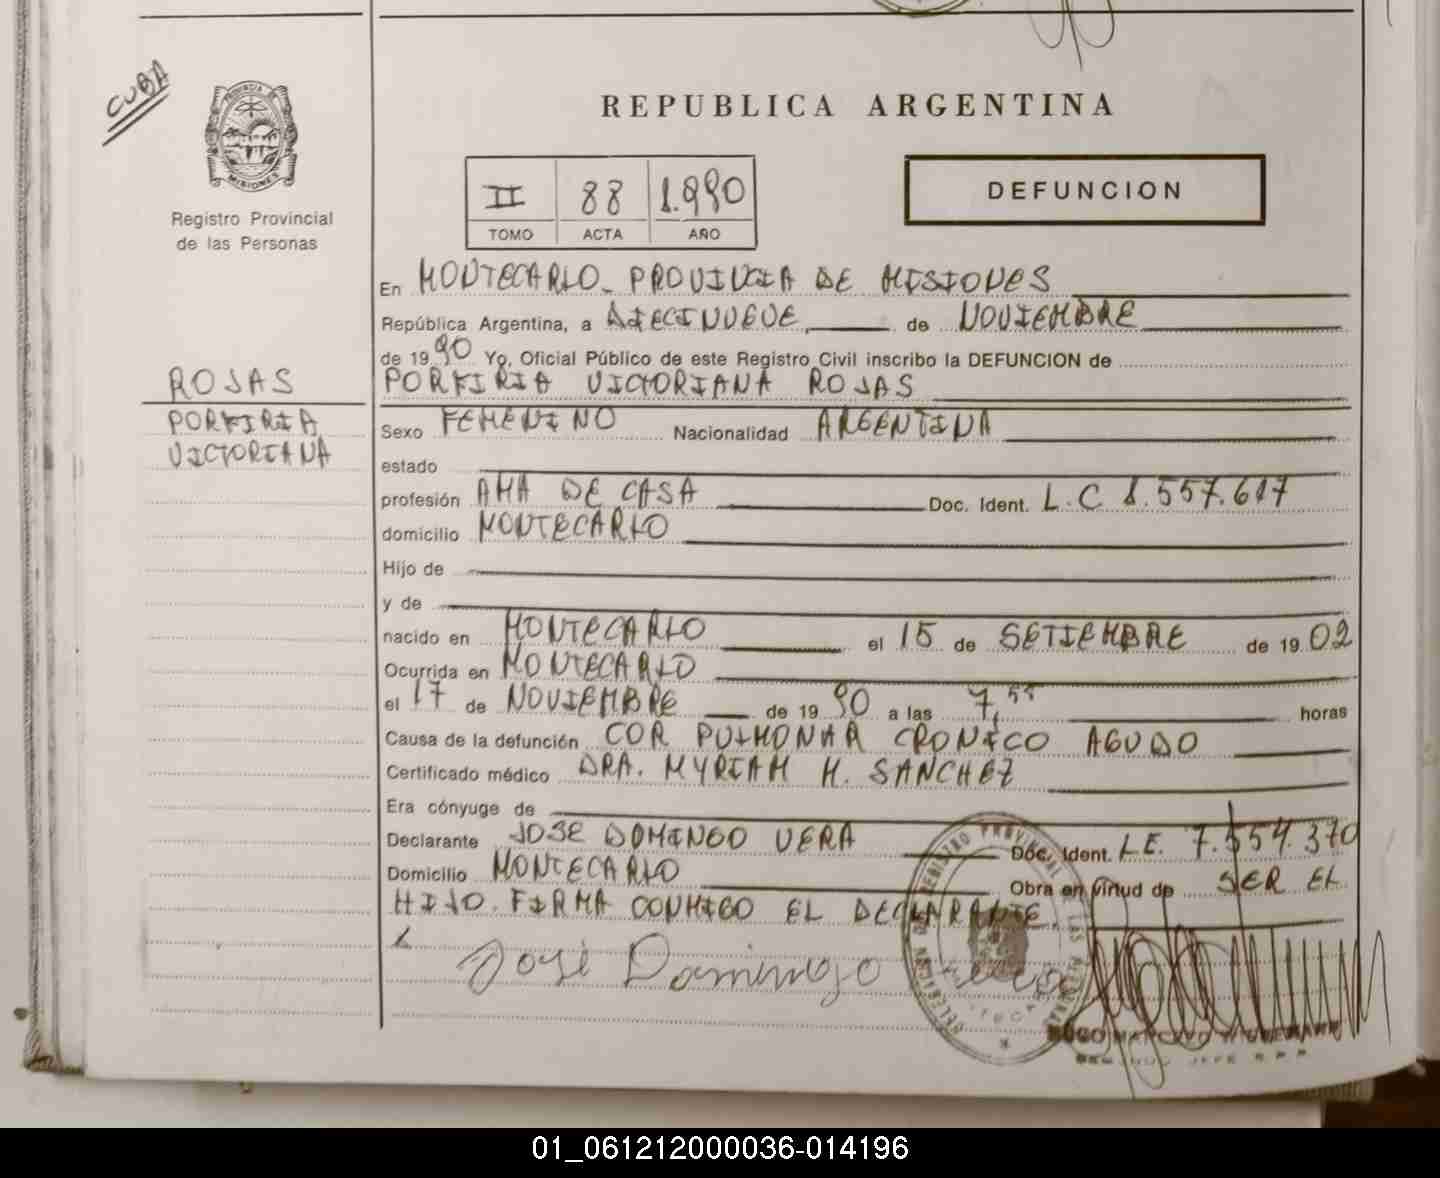 CUBA
PROVINCIA DE
MISIONES
Registro Provincial
de las Personas
REPUBLICA ARGENTINA
II 88 1.990
TOMO ACTA AÑO
DEFUNCION
En MONTECARLO - PROVINCIA DE MISIONES
República Argentina, a DIECINUEVE de NOVIEMBRE
de 1990 Yo, Oficial Público de este Registro Civil inscribo la DEFUNCION de
PORFIRIA VICTORIANA ROJAS
ROJAS
PORFIRIA
VICTORIANA
Sexo FEMENINO Nacionalidad ARGENTINA
estado
profesión AMA DE CASA Doc. Ident. L.C 1.557.617
domicilio MONTECARLO
Hijo de
y de
nacido en MONTECARLO el 15 de SETIEMBRE de 1902
Ocurrida en MONTECARLO
el 17 de NOVIEMBRE de 1990 a las 7,55 horas
Causa de la defunción COR PULMONAR CRONICO AGUDO
Certificado médico DRA. MYRIAM H. SANCHEZ
Era cónyuge de
Declarante JOSE DOMINGO VERA Doc. Ident. L.E. 7.554.370
Domicilio MONTECARLO Obra en virtud de SER EL
HIJO. FIRMA CONMIGO EL DECLARANTE.
José Domingo Vera
REGISTRO PROVINCIAL DE LAS PERSONAS
01_061212000036-014196